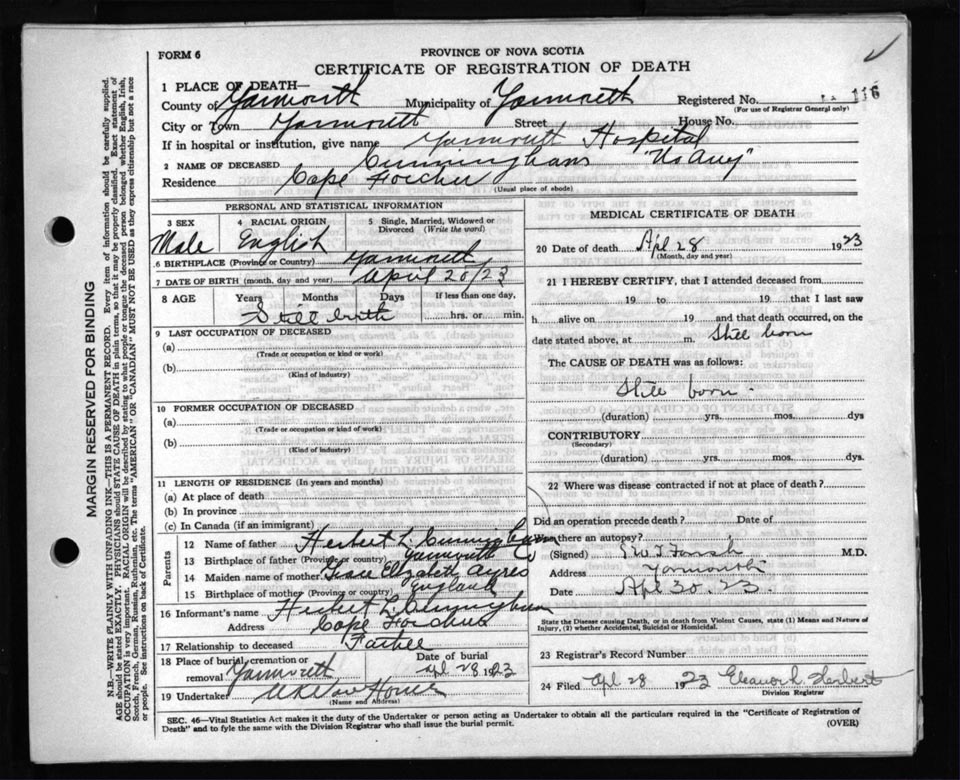 FORM 6
PROVINCE OF NOVA SCOTIA
CERTIFICATE OF REGISTRATION OF DEATH
1 PLACE OF DEATH—
County of Yarmouth Municipality of Yarmouth Registered No. 116
(For use of Registrar General only)
City or Town Yarmouth Street House No.
If in hospital or institution, give name Yarmouth Hospital
2 NAME OF DECEASED Cunningham
Residence Cape Forchu
(Usual place of abode)
PERSONAL AND STATISTICAL INFORMATION
3 SEX 4 RACIAL ORIGIN 5 Single, Married, Widowed or Divorced (Write the word)
Male English
6 BIRTHPLACE (Province or Country) Yarmouth
7 DATE OF BIRTH (month, day and year) April 28/23
8 AGE Years Months Days If less than one day,
Still birth hrs. or min.
9 LAST OCCUPATION OF DECEASED
(a)
(Trade or occupation or kind or work)
(b)
(Kind of industry)
10 FORMER OCCUPATION OF DECEASED
(a)
(Trade or occupation or kind of work)
(b)
(Kind of industry)
11 LENGTH OF RESIDENCE (In years and months)
(a) At place of death
(b) In province
(c) In Canada (if an immigrant)
Parents
12 Name of father Herbert L. Cunningham
13 Birthplace of father (Province or country) Yarmouth Co
14 Maiden name of mother Elizabeth Ayres
15 Birthplace of mother (Province or country) England
16 Informant's name Herbert L. Cunningham
Address Cape Forchu
17 Relationship to deceased Father
18 Place of burial, cremation or removal Yarmouth Date of burial Apl 28 1923
19 Undertaker
(Name and Address)
MEDICAL CERTIFICATE OF DEATH
20 Date of death Apl 28 1923
(Month, day and year)
21 I HEREBY CERTIFY, that I attended deceased from
19 to 19 that I last saw
h alive on 19 and that death occurred, on the
date stated above, at m. Still born
The CAUSE OF DEATH was as follows:
Still born.
(duration) yrs. mos. dys
CONTRIBUTORY
(Secondary)
(duration) yrs. mos. dys.
22 Where was disease contracted if not at place of death?
Did an operation precede death? Date of
Was there an autopsy?
(Signed) M.D.
Address Yarmouth
Date Apl 30. 23.
State the Disease causing Death, or in death from Violent Causes, state (1) Means and Nature of
Injury, (2) whether Accidental, Suicidal or Homicidal.
23 Registrar's Record Number
24 Filed Apl 28 1923 Eleanor L. Herbert
Division Registrar
SEC. 46—Vital Statistics Act makes it the duty of the Undertaker or person acting as Undertaker to obtain all the particulars required in the "Certificate of Registration of
Death" and to fyle the same with the Division Registrar who shall issue the burial permit. (OVER)
MARGIN RESERVED FOR BINDING
N.B.—WRITE PLAINLY WITH UNFADING INK—THIS IS A PERMANENT RECORD. Every item of information should be carefully supplied.
AGE should be stated EXACTLY. PHYSICIANS should STATE CAUSE OF DEATH in plain terms, so that it may be properly classified. Exact statement of
OCCUPATION is very important. RACIAL ORIGIN will be described by stating to what people or tongue the deceased person belonged whether English, Irish,
Scotch, French, German, Russian, Ruthenian, etc. The terms "AMERICAN" or "CANADIAN" MUST NOT BE USED as they express citizenship but not a race
or people. See instructions on back of Certificate.